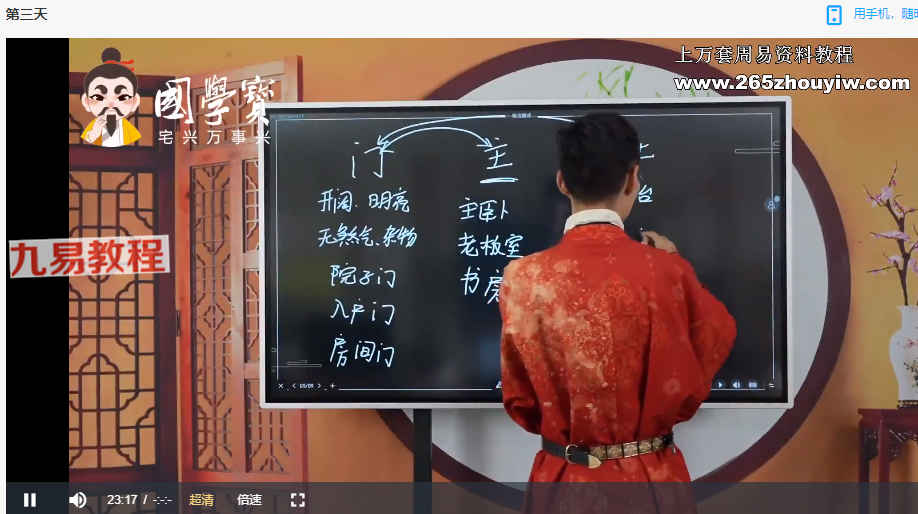 第三天
用手机，随时
上万套周易资料教程
www.265zhouyiw.com
國學寶
宅兴万事兴
九易教程
门
主
灶
开阔.明亮
主卧
台
无煞气、杂物
老板室
院子门
书房
入户门
房间门
23:17 / -:-:-
超清
倍速